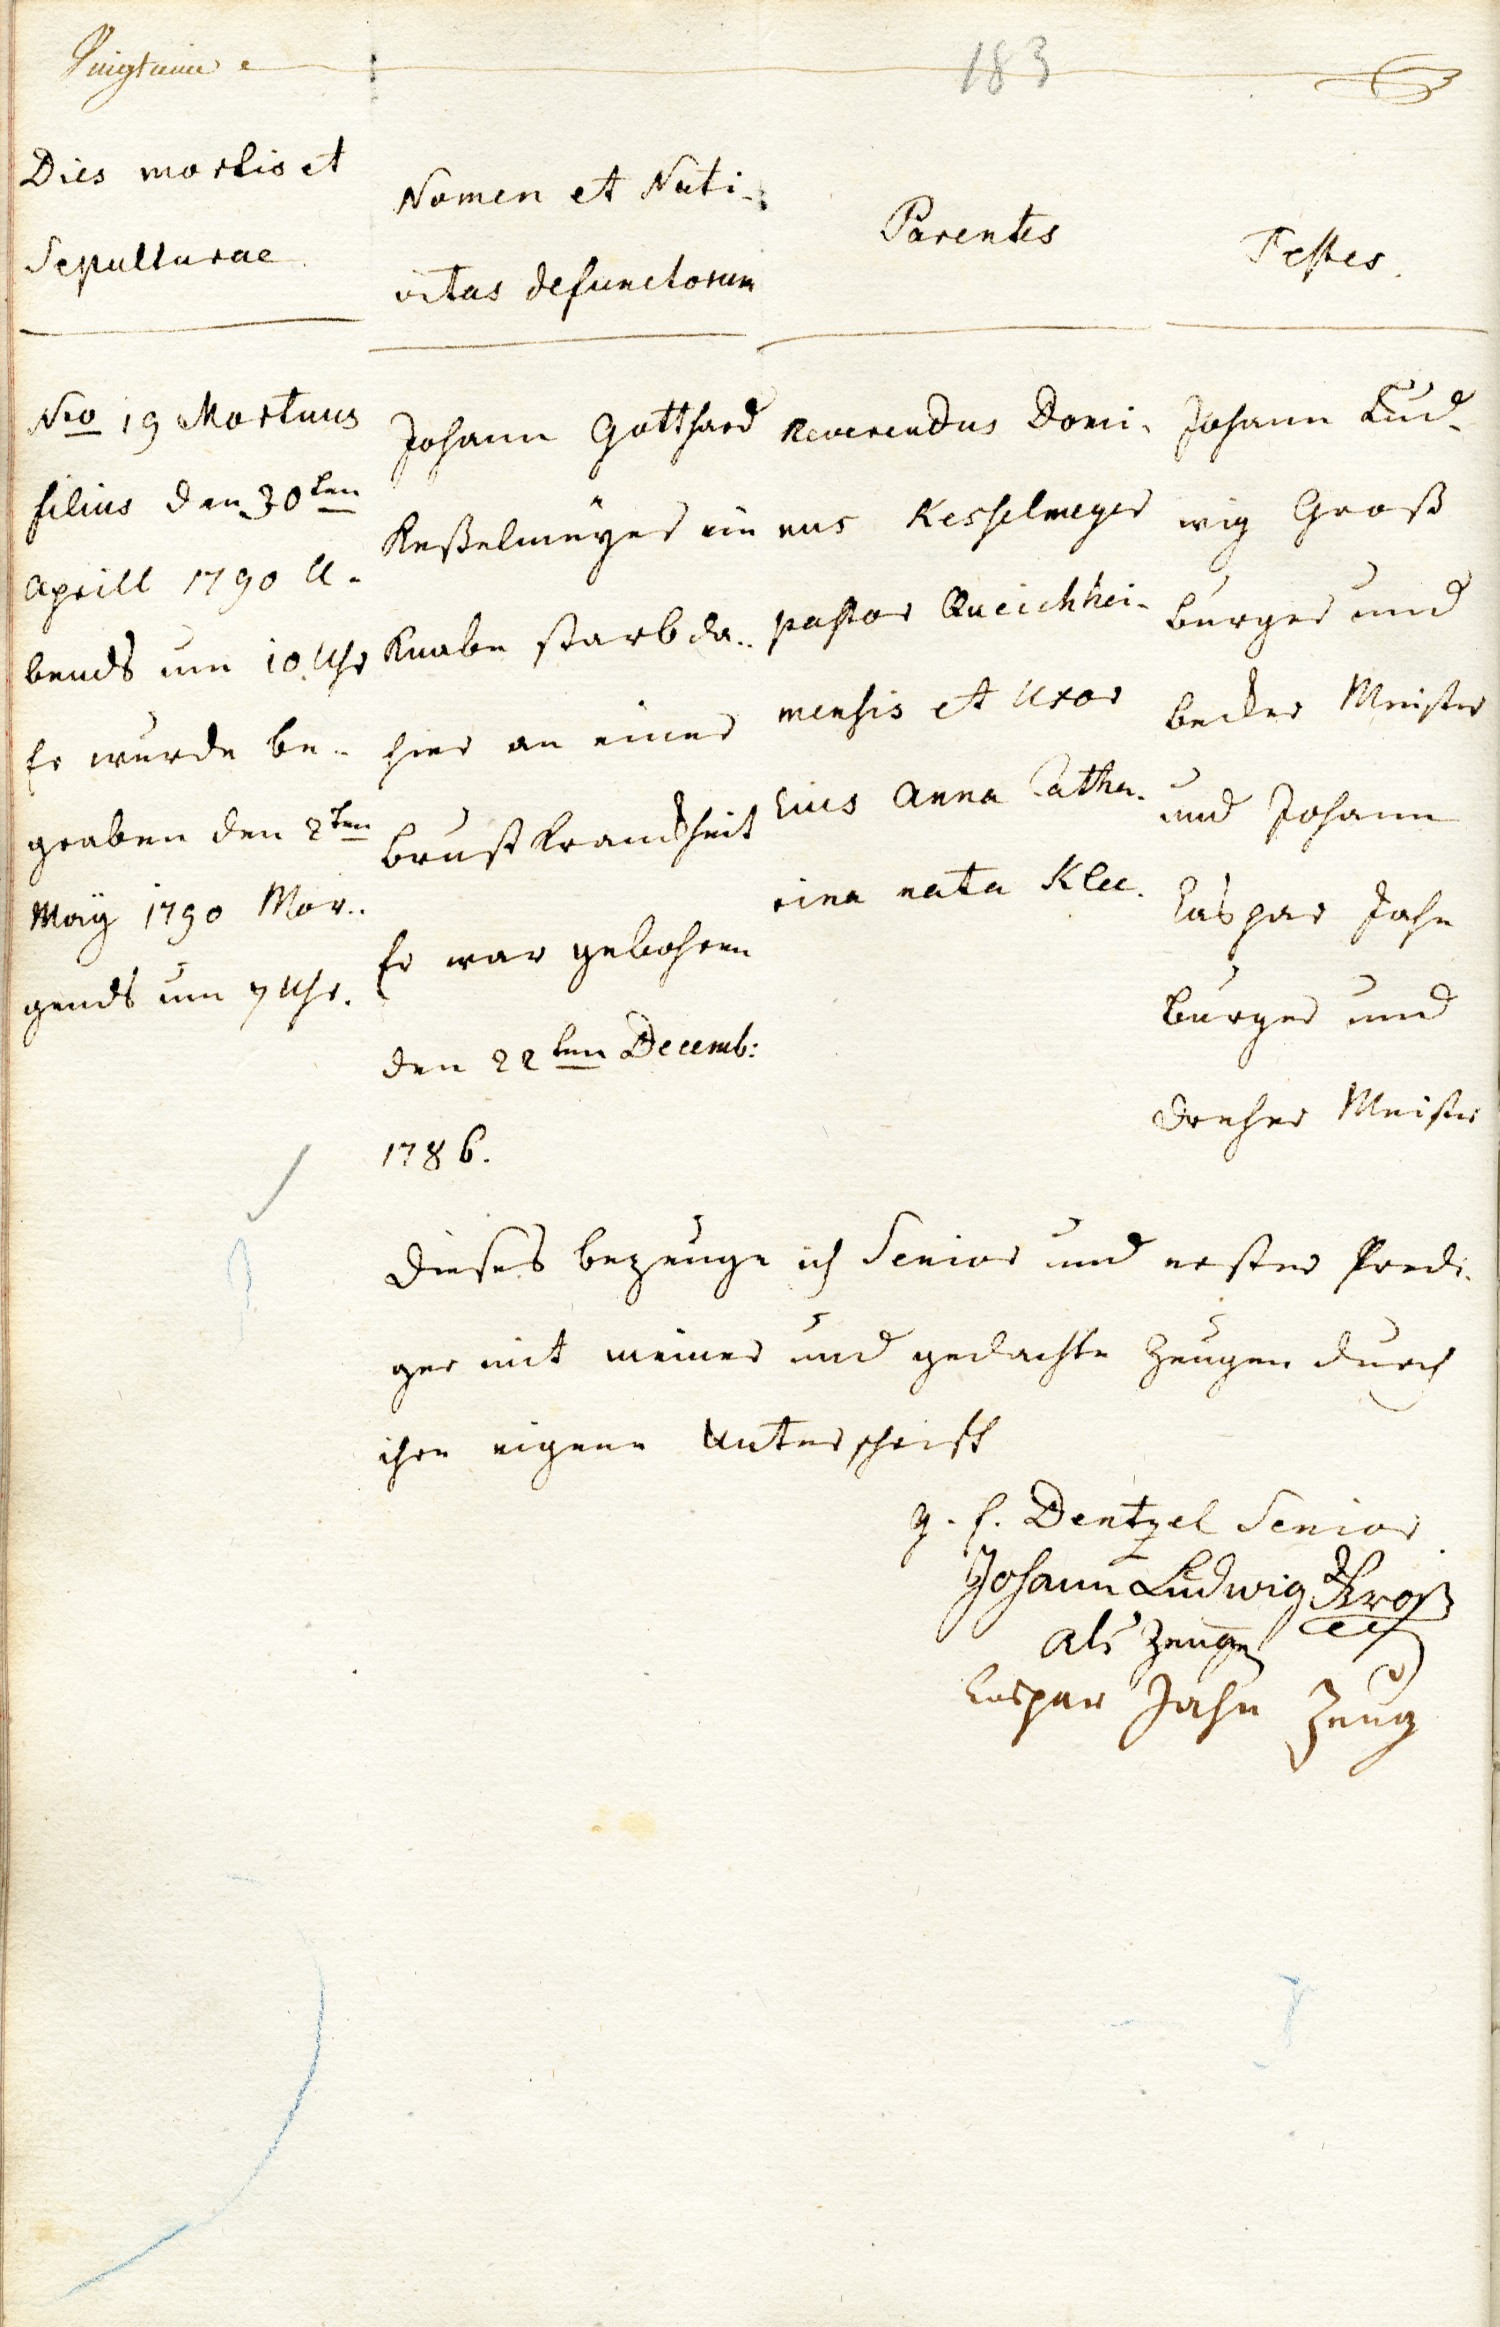 Vingtieme
183
Dies mortis et
Sepulturae.
Nomen et Nati-
vitas defunctorum
Parentes
Testes.
Nro 19 Mortuus
filius den 30ten
Aprill 1790 A-
bends um 10 Uhr
Er wurde be-
graben den 2ten
Maÿ 1790 Mor-
gends um 7 Uhr.
Johann Gotthard
Keßelmeÿer ein
Knabe starb da-
hier an einer
Brustkranckheit
Er war gebohren
den 22ten Decemb:
1786.
Reverendus Domi-
nus Kesselmeyer
pastor Queichhei-
mensis et Uxor
Eius Anna Catha-
rina nata Klee.
Johann Lud-
wig Groß
burger und
becker Meister
und Johann
Caspar Jahn
burger und
dreher Meister
Dieses bezeuge ich Senior und erster Predi-
ger mit meiner und gedachte Zeugen durch
ihre eigene Unterschrift
G. F. Dentzel Senior
Johann Ludwig Groß
als Zeuge
Caspar Jahn Zeug